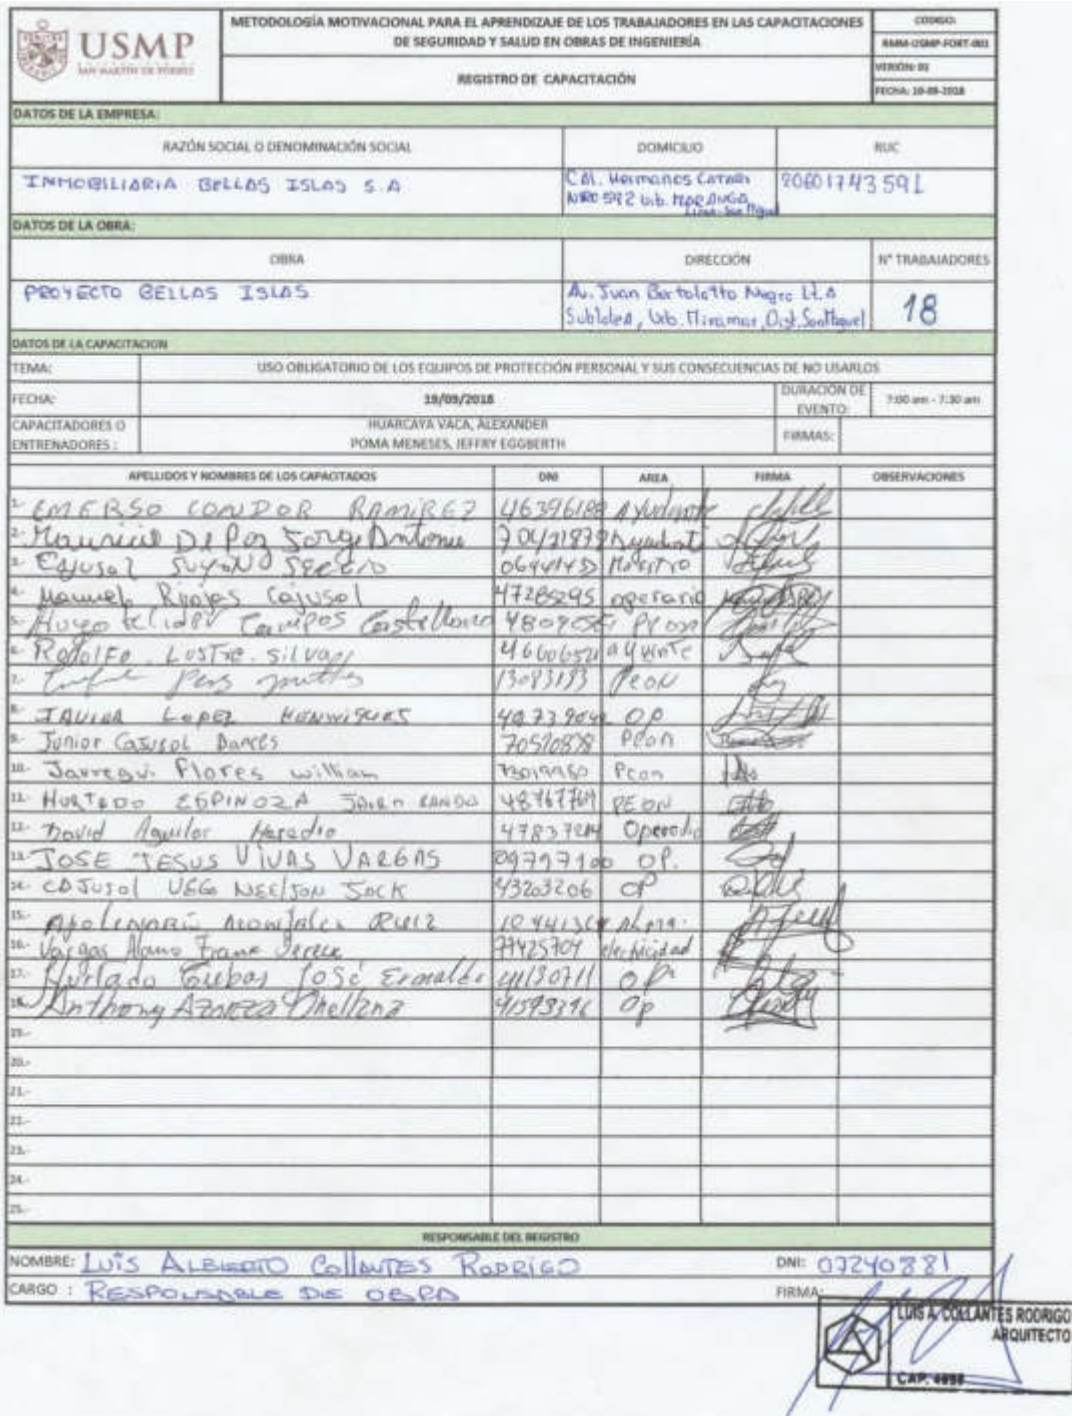 USMP
SAN MARTÍN DE PORRES
METODOLOGÍA MOTIVACIONAL PARA EL APRENDIZAJE DE LOS TRABAJADORES EN LAS CAPACITACIONES
DE SEGURIDAD Y SALUD EN OBRAS DE INGENIERÍA
REGISTRO DE CAPACITACIÓN
CODIGO:
RMM-USMP-FORT-001
VERSIÓN: 01
FECHA: 10-09-2018
DATOS DE LA EMPRESA:
RAZÓN SOCIAL O DENOMINACIÓN SOCIAL
DOMICILIO
RUC
INMOBILIARIA BELLAS ISLAS S.A
CAl. Hermanos CATARI
NRO 592 Urb. MARANGA
Lima-San Miguel
20601743591
DATOS DE LA OBRA:
OBRA
DIRECCIÓN
N° TRABAJADORES
PROYECTO BELLAS ISLAS
Av. Juan Bertolotto Negro Lt.A
Sublote A, Urb. Miramar, Dist. San Miguel
18
DATOS DE LA CAPACITACION
TEMA: USO OBLIGATORIO DE LOS EQUIPOS DE PROTECCIÓN PERSONAL Y SUS CONSECUENCIAS DE NO USARLOS
FECHA: 19/09/2018 DURACIÓN DE
EVENTO: 7:00 am - 7:30 am
CAPACITADORES O
ENTRENADORES :
HUARCAYA VACA, ALEXANDER
POMA MENESES, JEFFRY EGGBERTH
FIRMAS:
APELLIDOS Y NOMBRES DE LOS CAPACITADOS DNI AREA FIRMA OBSERVACIONES
1.- EMERSO CONDOR RAMIREZ 46396188 Ayudante
2.- Mauricio De Paz Jorge Antonio Ayudante
3.- Cajusol SUYON SERGIO Maestro
4.- Manuel Riojas Cajusol 47285295 operario
5.- Hugo Campos Castellano Peon
6.- Rodolfo silva
7.- 13083193 Peon
8.- JAVIER LOPEZ OP
9.- Junior Cajusol 70520878 Peon
10.- Jauregui Flores william Peon
11.- HURTADO ESPINOZA 48767769 PEON
12.- David Aguilar Heredia Operario
13.- JOSE JESUS VIVAS VARGAS 09797100 OP.
14.- CAJUSOL 43203206 OP
15.- RUIZ
16.- Vargas Alamo 77425704 electricidad
17.- Hurtado José 41130711 OP
18.- Anthony Orellana 41593396 Op
19.-
20.-
21.-
22.-
23.-
24.-
25.-
RESPONSABLE DEL REGISTRO
NOMBRE: LUIS ALBERTO COLLANTES RODRIGO DNI: 07240881
CARGO : RESPONSABLE DE OBRA FIRMA:
LUIS A. COLLANTES RODRIGO
ARQUITECTO
CAP.